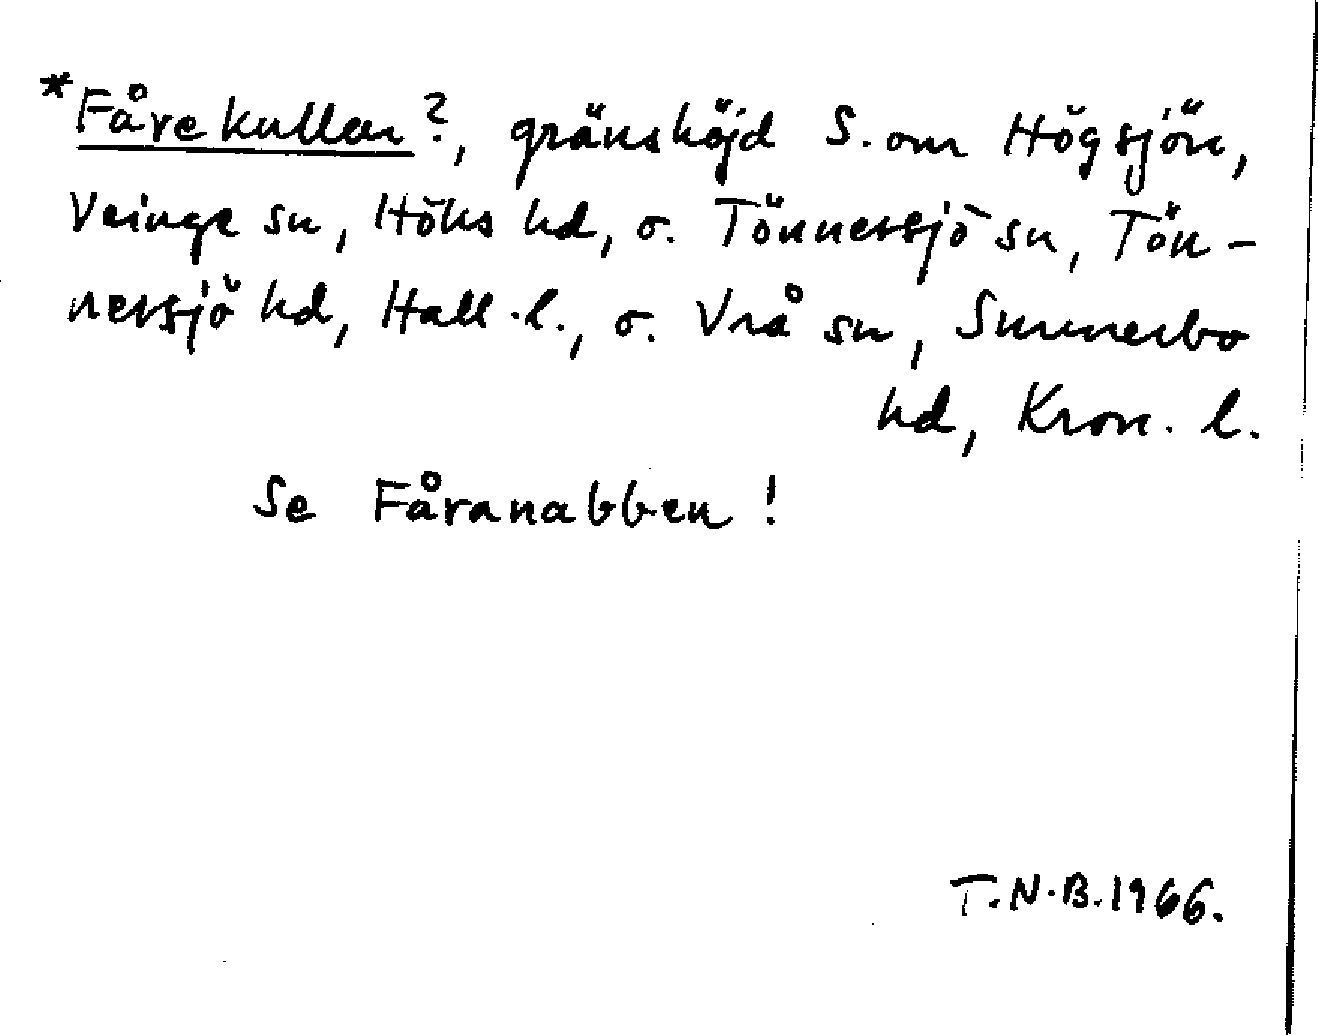 *Fårekullen?, gränshöjd S. om Högsjön,
Veinge sn, Höks hd, o. Tönnersjö sn, Tön-
nersjö hd, Hall. l., o. Vrå sn, Sunnerbo
hd, Kron. l.
Se Fåranabben!
T.N.B. 1966.